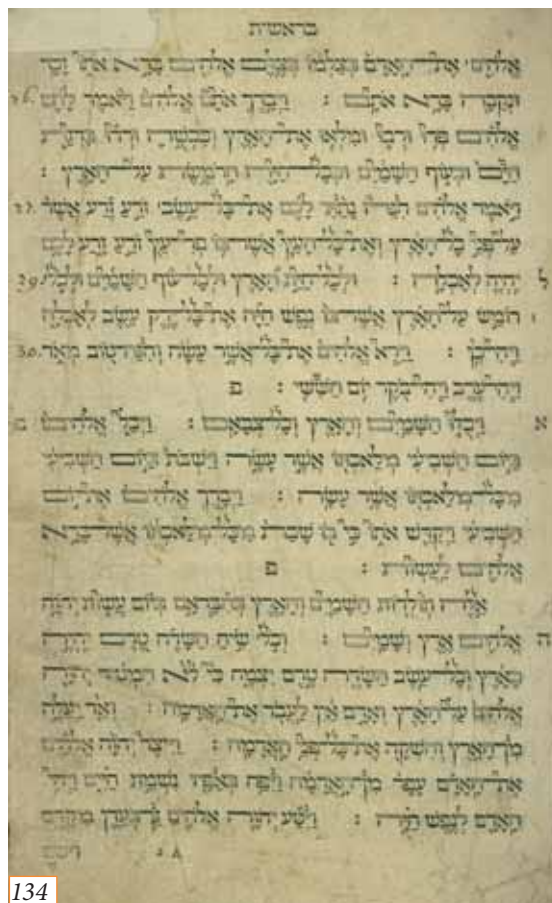 בראשית
אלהים את־האדם בצלמו בצלם אלהים ברא אתו זכר
ונקבה ברא אתם : ויברך אתם אלהים ויאמר להם
אלהים פרו ורבו ומלאו את־הארץ וכבשה ורדו בדגת
הים ובעוף השמים ובכל־חיה הרמשת על־הארץ :
ויאמר אלהים הנה נתתי לכם את־כל־עשב זרע זרע אשר
על־פני כל־הארץ ואת־כל־העץ אשר־בו פרי־עץ זרע זרע לכם
יהיה לאכלה : ולכל־חית הארץ ולכל־עוף השמים ולכל
רומש על־הארץ אשר־בו נפש חיה את־כל־ירק עשב לאכלה
ויהי־כן : וירא אלהים את־כל־אשר עשה והנה־טוב מאד
ויהי־ערב ויהי־בקר יום הששי : פ
ויכלו השמים והארץ וכל־צבאם : ויכל אלהים
ביום השביעי מלאכתו אשר עשה וישבת ביום השביעי
מכל־מלאכתו אשר עשה : ויברך אלהים את־יום
השביעי ויקדש אתו כי בו שבת מכל־מלאכתו אשר־ברא
אלהים לעשות : פ
אלה תולדות השמים והארץ בהבראם ביום עשות יהוה
אלהים ארץ ושמים : וכל שיח השדה טרם יהיה
בארץ וכל־עשב השדה טרם יצמח כי לא המטיר יהוה
אלהים על־הארץ ואדם אין לעבד את־האדמה : ואד יעלה
מן־הארץ והשקה את־כל־פני האדמה : וייצר יהוה אלהים
את־האדם עפר מן־האדמה ויפח באפיו נשמת חיים ויהי
האדם לנפש חיה : ויטע יהוה אלהים גן־בעדן מקדם
וישם
134